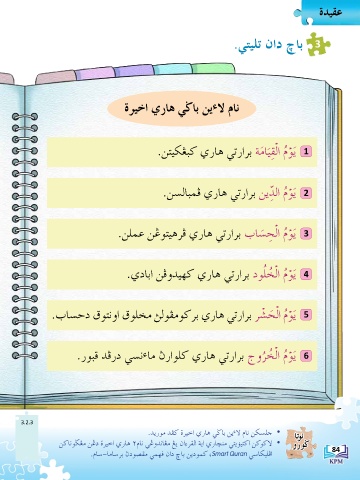 عقيدة
3 باچ دان تليتي.
نام لاءين باݢي هاري اخيرة
1 يَوْمُ الْقِيَامَة برارتي هاري كبڠكيتن.
2 يَوْمُ الدِّين برارتي هاري ڤمبالسن.
3 يَوْمُ الْحِسَاب برارتي هاري ڤرهيتوڠن عملن.
4 يَوْمُ الْخُلُود برارتي هاري كهيدوڤن ابادي.
5 يَوْمُ الْحَشْر برارتي هاري بركومڤولڽ مخلوق اونتوق دحساب.
6 يَوْمُ الْخُرُوج برارتي هاري كلوارڽ ماءنسي درڤد قبور.
3.2.3
نوتا ݢورو
• جلسكن نام لاءين باݢي هاري اخيرة كڤد موريد.
• لاكوكن اكتيۏيتي منچاري اية القرءان يڠ مڠاندوڠي نام٢ هاري اخيرة دڠن مڠݢوناكن
اڤليكاسي Smart Quran، كمودين باچ دان فهمي مقصودڽ برسام-سام.
84
KPM